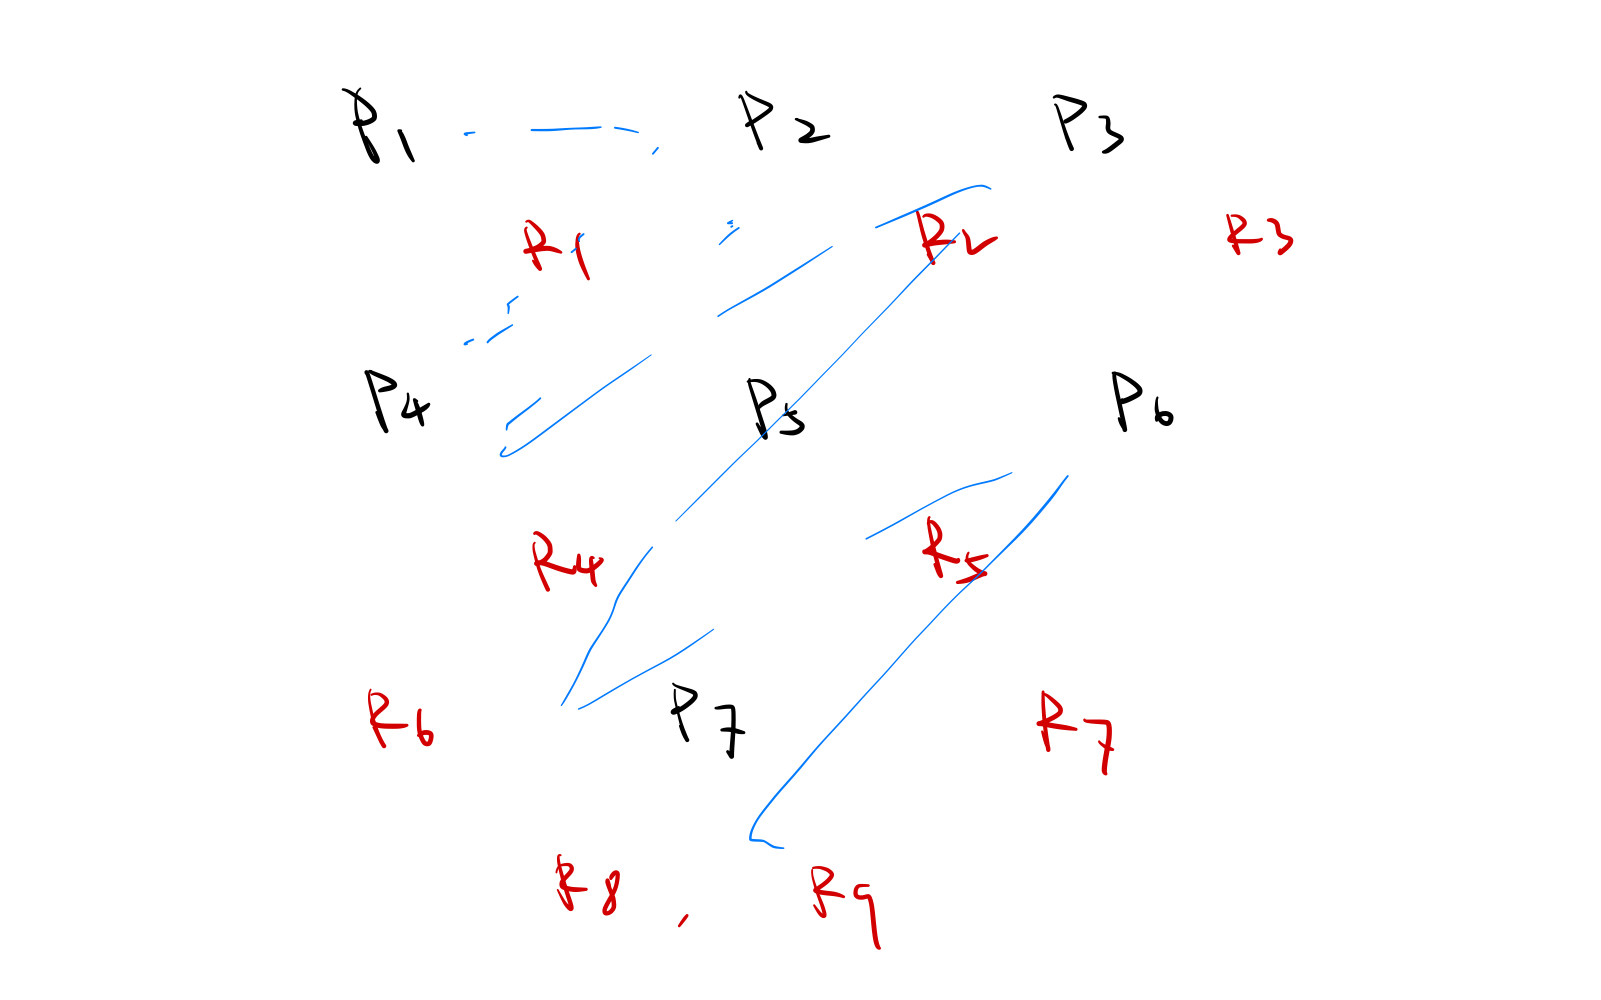 P1 P2 P3
R1 R2 R3
P4 P5 P6
R4 R5
R6 P7 R7
R8 , R9